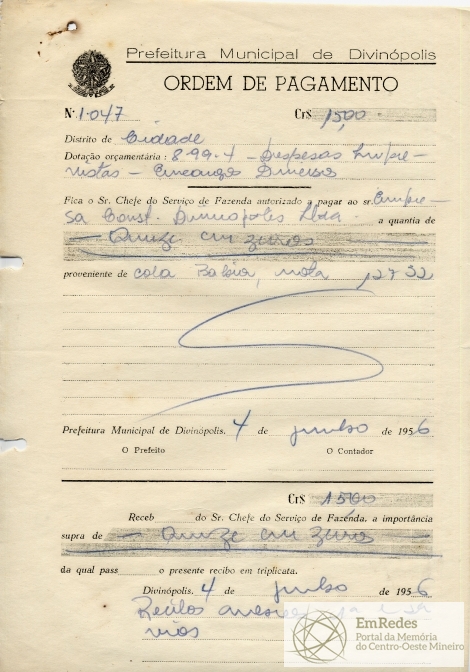 Prefeitura Municipal de Divinópolis
ORDEM DE PAGAMENTO
Nº 1.047 Cr$ 15,00
Distrito de Cidade
Dotação orçamentária : 8-99-4 - Despesas Impre-
vistas - Encargos Diversos
Fica o Sr. Chefe do Serviço de Fazenda autorizado a pagar ao sr. Empre-
sa Const. Divinópolis Ltda. a quantia de
- Quinze cruzeiros
proveniente de cola nota 12732
Prefeitura Municipal de Divinópolis, 4 de junho de 1956
O Prefeito O Contador
Cr$ 15,00
Receb do Sr. Chefe do Serviço de Fazenda, a importância
supra de - Quinze cruzeiros
da qual pass o presente recibo em triplicata.
Divinópolis, 4 de junho de 1956
Recibos
EmRedes
Portal da Memória
do Centro-Oeste Mineiro